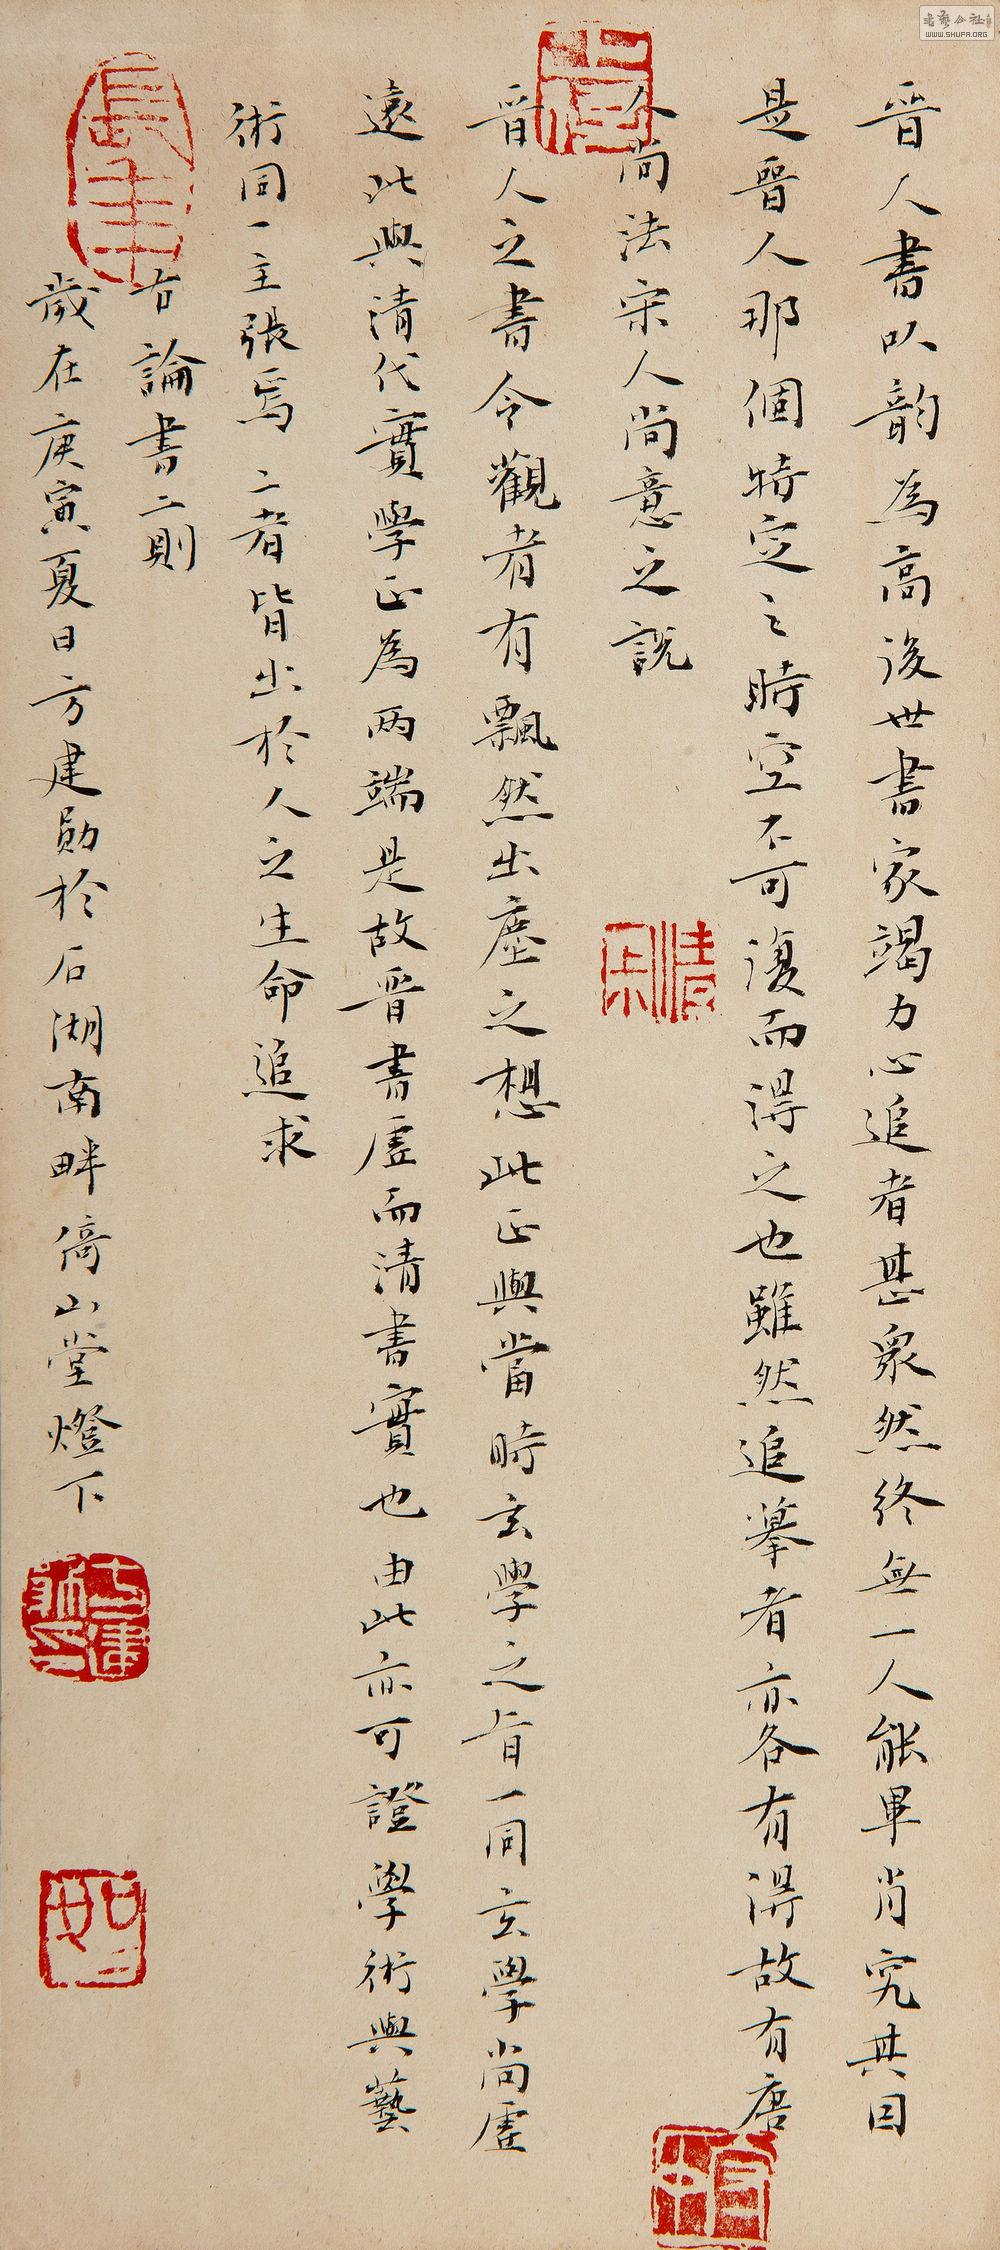 晉人書以韵為高後世書家竭力心追者甚衆然終無一人能畢肖究其因
是晉人那個特定之時空不可復而得之也雖然追摹者亦各有得故有唐
人尚法宋人尚意之說
晉人之書令觀者有飄然出塵之想此正與當時玄學之旨一同玄學尚虛
遠此與清代實學正為兩端是故晉書虛而清書實也由此亦可證學術與藝
術同一主張焉二者皆出於人之生命追求
右論書二則
歲在庚寅夏日方建勛於石湖南畔倚山堂燈下
書藝公社
WWW.SHUFA.ORG